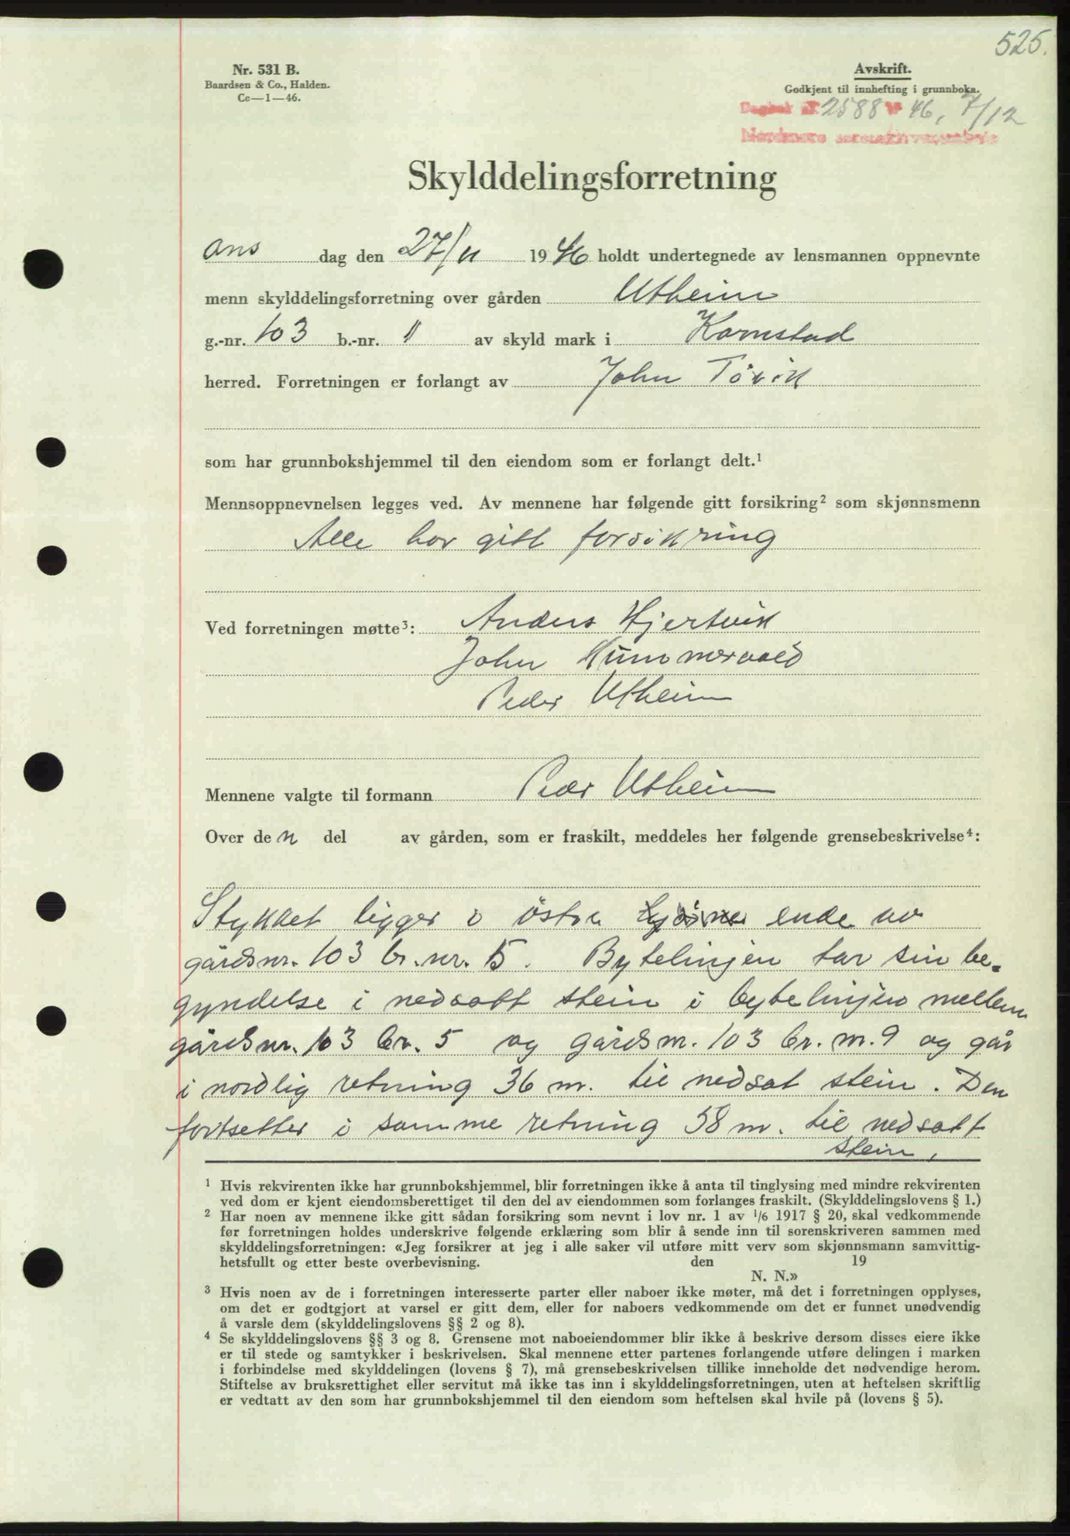 525.
Nr. 531 B.
Baardsen & Co., Halden.
Cc—1—46.
Avskrift.
Godkjent til innhefting i grunnboka.
Dagbok nr 2588 19 46, 7/12
Nordmøre sorenskriverembete
Skylddelingsforretning
Ons dag den 27/11 1946 holdt undertegnede av lensmannen oppnevnte
menn skylddelingsforretning over gården Utheim
g.-nr. 103 b.-nr. av skyld mark i Kornstad
herred. Forretningen er forlangt av John Tøvik
som har grunnbokshjemmel til den eiendom som er forlangt delt.¹
Mennsoppnevnelsen legges ved. Av mennene har følgende gitt forsikring² som skjønnsmenn
Alle har gitt forsikring
Ved forretningen møtte³: Anders Hjertvik
John
Peder Utheim
Mennene valgte til formann Peder Utheim
Over den del av gården, som er fraskilt, meddeles her følgende grensebeskrivelse⁴:
Stykket ligger i østre ende av
gårdsnr. 103 br. nr. 5. Bytelinjen tar sin be-
gyndelse i nedsatt stein i bytelinjen mellem
gårdsnr. 103 br. 5 og gårdsnr. 103 br. nr. 9 og går
i nordlig retning 36 m. til nedsat stein. Den
fortsetter i samme retning 58 m. til nedsatt
stein,
¹ Hvis rekvirenten ikke har grunnbokshjemmel, blir forretningen ikke å anta til tinglysing med mindre rekvirenten
ved dom er kjent eiendomsberettiget til den del av eiendommen som forlanges fraskilt. (Skylddelingslovens § 1.)
² Har noen av mennene ikke gitt sådan forsikring som nevnt i lov nr. 1 av 1/6 1917 § 20, skal vedkommende
før forretningen holdes underskrive følgende erklæring som blir å sende inn til sorenskriveren sammen med
skylddelingsforretningen: «Jeg forsikrer at jeg i alle saker vil utføre mitt verv som skjønnsmann samvittig-
hetsfullt og etter beste overbevisning. den 19
N. N.»
³ Hvis noen av de i forretningen interesserte parter eller naboer ikke møter, må det i forretningen opplyses,
om det er godtgjort at varsel er gitt dem, eller for naboers vedkommende om det er funnet unødvendig
å varsle dem (skylddelingslovens §§ 2 og 8).
⁴ Se skylddelingslovens §§ 3 og 8. Grensene mot naboeiendommer blir ikke å beskrive dersom disses eiere ikke
er til stede og samtykker i beskrivelsen. Skal mennene etter partenes forlangende utføre delingen i marken
i forbindelse med skylddelingen (lovens § 7), må grensebeskrivelsen tillike inneholde det nødvendige herom.
Stiftelse av bruksrettighet eller servitut må ikke tas inn i skylddelingsforretningen, uten at heftelsen skriftlig
er vedtatt av den som har grunnbokshjemmel til den eiendom som heftelsen skal hvile på (lovens § 5).